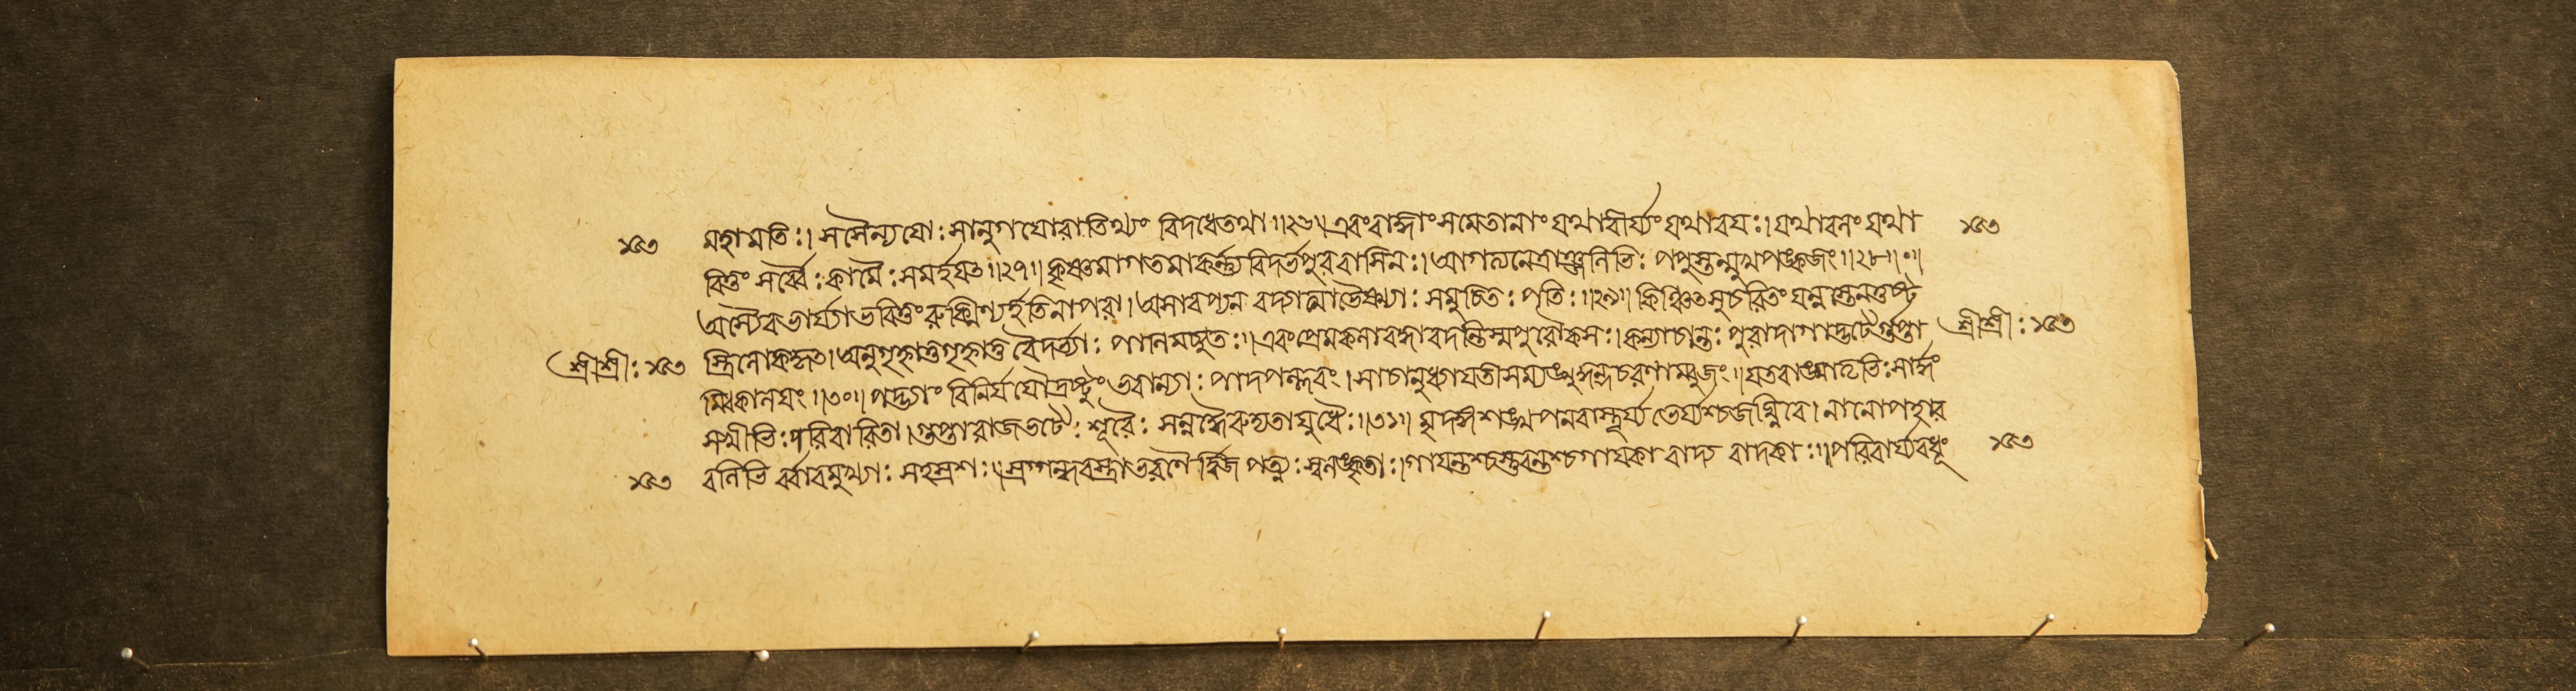 মহামতি:। সসৈন্যযো: সানুগযোরাতিথ্যং বিদধেতথা॥২৬॥ এবংরাজ্ঞাংসমেতানাং যথাবীর্য্যং যথাবয:। যথাবলং যথা
বিত্তং সর্ব্বৈ: কামৈ: সমর্হযৎ॥২৭॥ কৃষ্ণমাগতমাকর্ন্ন্য বিদর্ভপুরবাসিন:। আগত্যনেত্রাঞ্জলিভি: পপুস্তন্মুখপঙ্কজং॥২৮॥
অস্যৈবভার্য্যাভবিত্তুংরুক্মিণ্যর্হতিনাপরা। অসাবপ্যনবদ্যাত্মাভৈষ্ম্যা: সমুচিত: পতি:॥২৯॥ কিঞ্চিৎসুচরিতং যন্নস্তেনতুষ্ট
শ্রীশ্রী:
শ্রীশ্রী:
স্ত্রিলোককৃৎ। অনুগৃহ্নাতুগৃহ্নাতু বৈদর্ভ্যা: পাণিমচ্যুত:। এবংপ্রেমকলাবদ্ধাবদন্তিস্মপুরৌকস:। কন্যাচান্ত: পুরাদাগাদ্ভটৈর্গুপ্তা
ম্বিকালযং॥৩০॥ পদ্ভ্যাং বিনির্যযৌদ্রষ্টুং ভবান্যা: পাদপল্লবং। সাচানুধ্যাযতীসম্যঙ্মুকুন্দচরণাম্বুজং॥ যতবাঙ্মাতৃভি: সার্দ্ধং
সখীভি: পরিবারিতা। গুপ্তারাজভটৈ: শূরৈ: সন্নদ্ধৈরুদ্যতাযুধৈ:॥৩১॥ মৃদঙ্গশঙ্খপনবাস্তূর্য্যভের্য্যশ্চজঘ্নিরে। নানোপহার
বলিভি র্বারমুখ্যা: সহস্রশ:॥ স্রগ্গন্ধবস্ত্রাভরণৈ র্দ্বিজপত্ন্য: স্বলঙ্কৃতা:। গাযন্তশ্চস্তুবন্তশ্চগাযকা বাদ্য বাদকা:॥ পরিবার্য্যবধূং